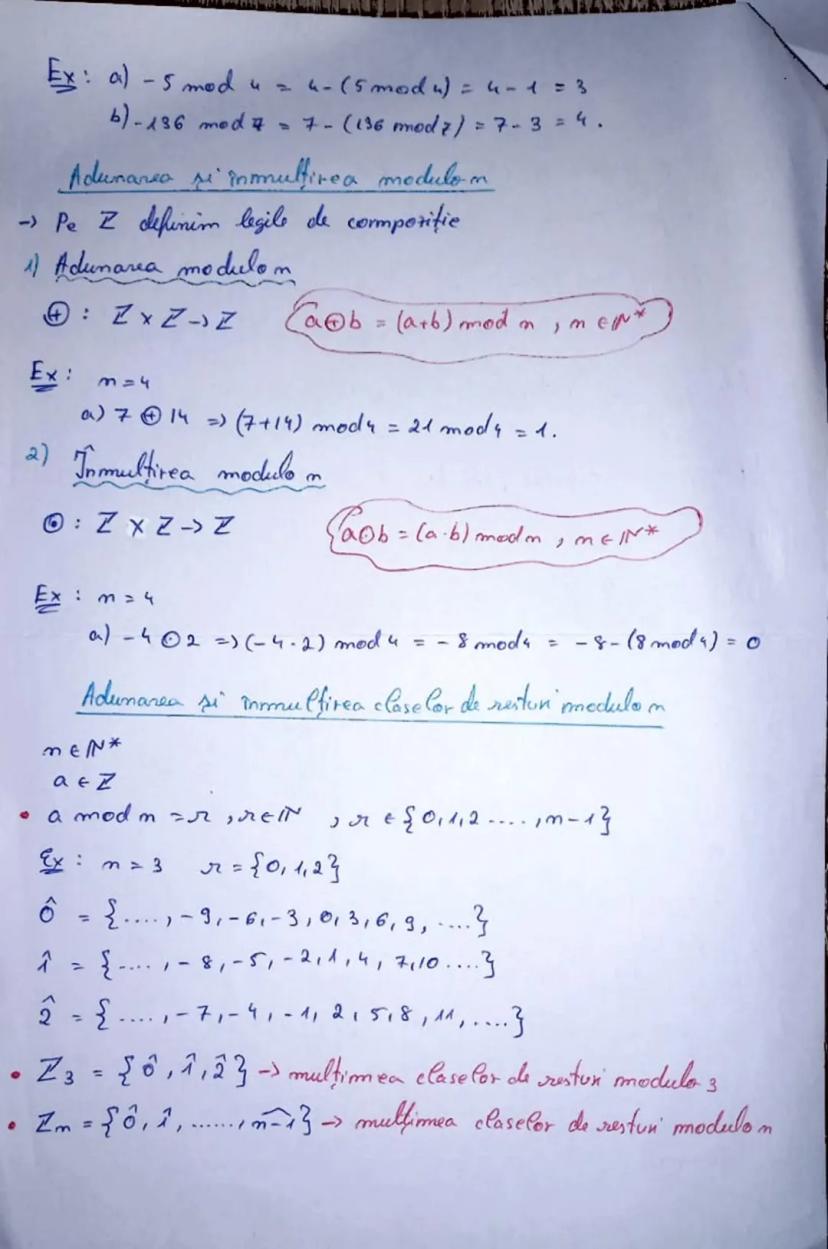 Ex: a) -5 mod 4 = 4-(5 mod 4) = 4-1 = 3
b) -136 mod 7 = 7-(136 mod 7) = 7-3 = 4.
Adunarea și înmulțirea modulo n
-> Pe Z definim legile de compoziție
1) Adunarea modulo n
⊕ : Z x Z -> Z a⊕b = (a+b) mod n , n ∈ N*
Ex: n=4
a) 7 ⊕ 14 => (7+14) mod 4 = 21 mod 4 = 1.
2) Înmulțirea modulo n
⊙ : Z x Z -> Z a⊙b = (a·b) mod n , n ∈ N*
Ex : n=4
a) -4 ⊙ 2 => (-4·2) mod 4 = -8 mod 4 = -8-(8 mod 4) = 0
Adunarea și înmulțirea claselor de resturi modulo n
n ∈ N*
a ∈ Z
• a mod n = r , r ∈ N , r ∈ {0,1,2 ...., n-1}
Ex : n = 3 r = {0,1,2}
0̂ = {...., -9, -6, -3, 0, 3, 6, 9, ....}
1̂ = {...., -8, -5, -2, 1, 4, 7, 10 ....}
2̂ = {...., -7, -4, -1, 2, 5, 8, 11, ....}
• Z₃ = {0̂, 1̂, 2̂} -> mulțimea claselor de resturi modulo 3
• Zₙ = {0̂, 1̂, ......, n-1̂} -> mulțimea claselor de resturi modulo n